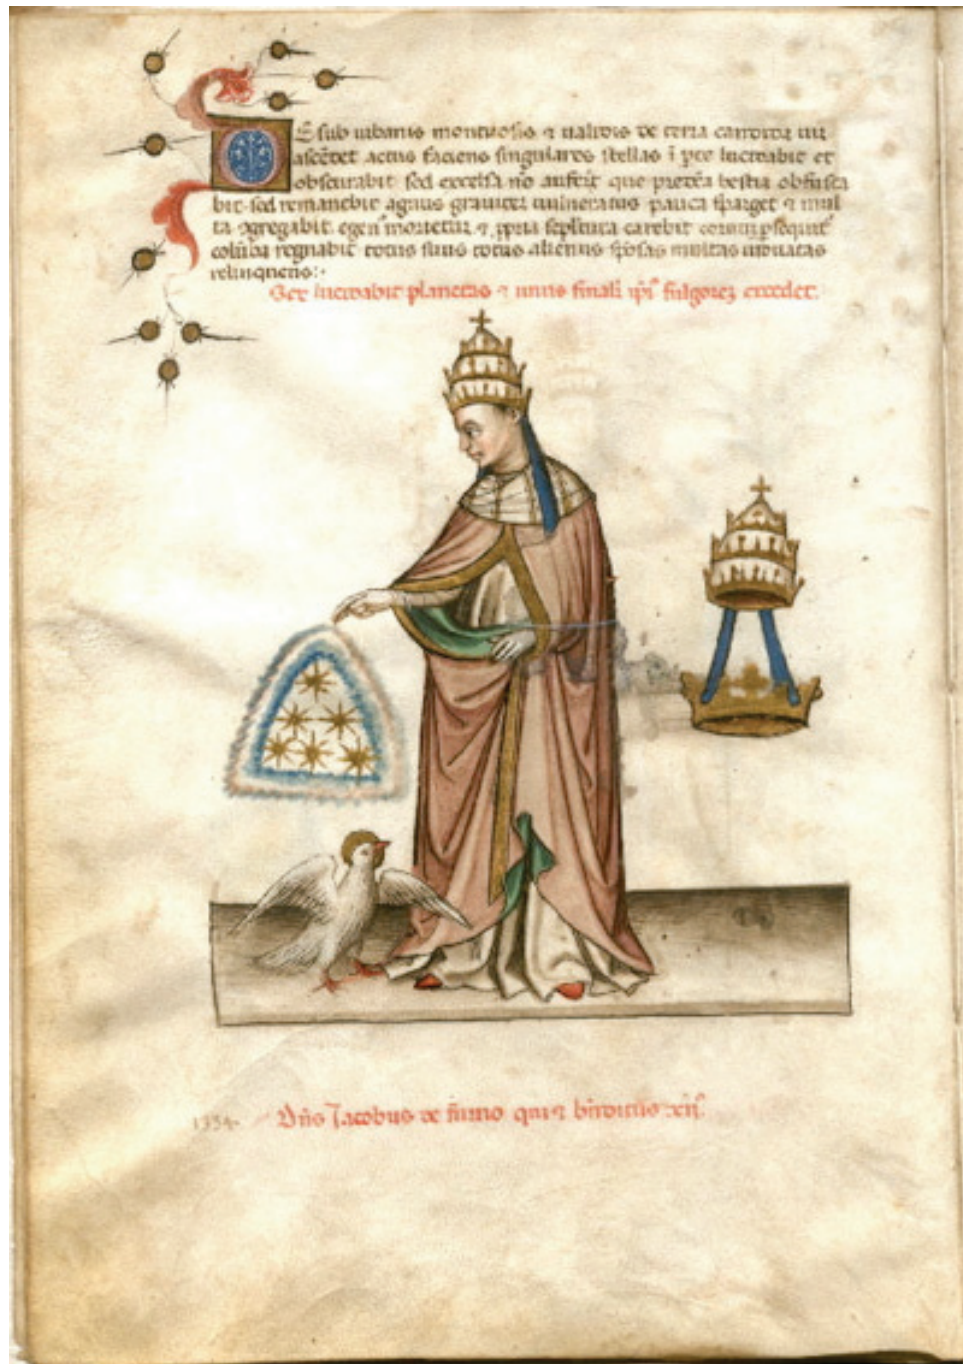 DE sub urbanis montuosis ⁊ ualidis de terra candida
ascēdet actus faciens singulares stellas ī pce lucrabit et
obscurabit sed excelsa nō auferit que pretēa bestia obfusca
bit sed remanebit agnus grauiter uulneratus pauca sparget ⁊ mul
ta ogregabit egenꝰ morietur ⁊ ppria sepltura carebit
colūba regnabit totus suus totus alienus sposas multas uiduatas
relinquens:·
Sex lucrabit planetas ⁊ unus finalr ipi fulgorez excedet.
1334 Dn̄s Jacobus de qui ⁊ bn̄dictus xii.